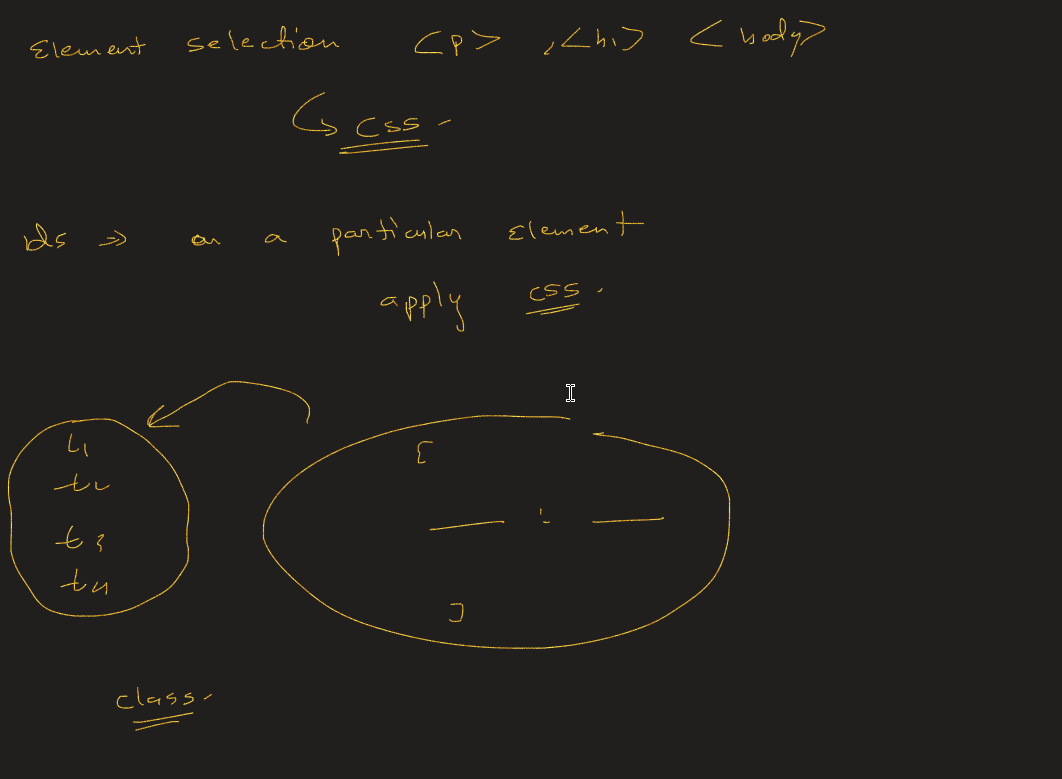 Element selection <p> , <h1> <body>
css
ids => on a particular Element
apply css.
[
t1
t2
:
t3
t4
]
class